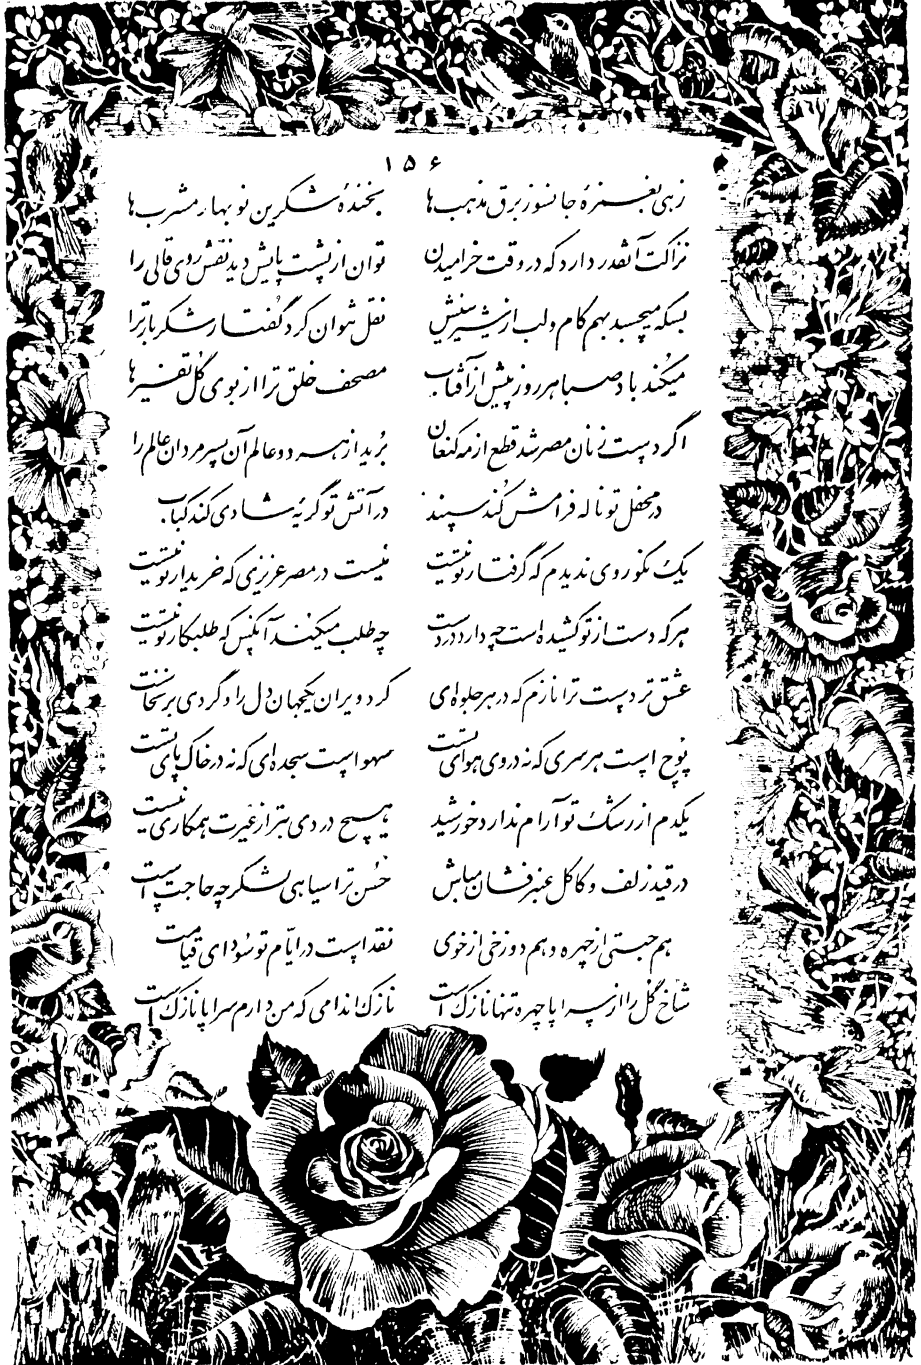 ۱۵۶
زهی بغمزهٔ جانسوز برق مذهب‌ها بخندهٔ شکرین نوبهار مشرب‌ها
نزاکت آنقدر دارد که در وقت خرامیدن توان از پشت پایش دید نقش روی قالی را
بسکه میچسبد بهم کام و لب از شیرینیش نقل نتوان کرد گفتار شکربار ترا
میکند باد صبا هر روز پیش از آفتاب مصحف خلق ترا از بوی گل تفسیرها
اگر دست زنان مصر شد قطع از مه کنعان برید از هر دو عالم آن پسر مردان عالم را
در محفل تو ناله فرامش کند سپند در آتش تو گریهٔ شادی کند کباب
یک نکوروی ندیدم که گرفتار تو نیست نیست در مصر عزیزی که خریدار تو نیست
هر که دست از تو کشیده است چه دارد در دست چه طلب میکند آنکس که طلبکار تو نیست
عشق تردست ترا نازم که در هر جلوه‌ای کرد ویران یکجهان دل را و گردی برنخاست
پوچ است هر سری که نه در وی هوای تست سهو است سجده‌ای که نه در خاک پای تست
یکدم از رشک تو آرام ندارد خورشید هیچ دردی بتر از غیرت همکاری نیست
در قید زلف و کاکل عنبرفشان مباش حسن ترا سیاهی لشکر چه حاجت است
هم جنتی از چهره و هم دوزخی از خوی نقد است در ایام تو سودای قیامت
شاخ گل را از سراپا چهره تنها نازک است نازک اندامی که من دارم سراپا نازک است